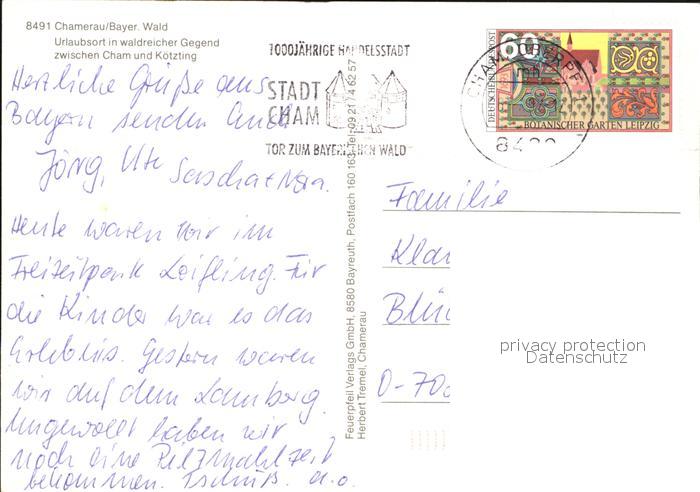 8491 Chamerau/Bayer. Wald
Urlaubsort in waldreicher Gegend
zwischen Cham und Kötzting
Herzliche Grüße aus
Bayern senden Euch
Jörg, Ute Sascha + Nora.
Heute waren wir im
Freizeitpark Loifling. Für
die Kinder war es das
Erlebnis. Gestern waren
wir auf dem Lamberg.
Ungewollt haben wir
noch eine Pilzmahlzeit
bekommen. Tschüß. a.o.
1000JÄHRIGE HANDELSSTADT
STADT
CHAM
TOR ZUM BAYERISCHEN WALD
Feuerpfeil Verlags GmbH, 8580 Bayreuth, Postfach 160 163, Tel. 09 21 / 4 62 57
Herbert Tremel, Chamerau
DEUTSCHE BUNDESPOST
60
BOTANISCHER GARTEN LEIPZIG
CHAM, OBERPF
Familie
Klar
Blü
O-70
privacy protection
Datenschutz